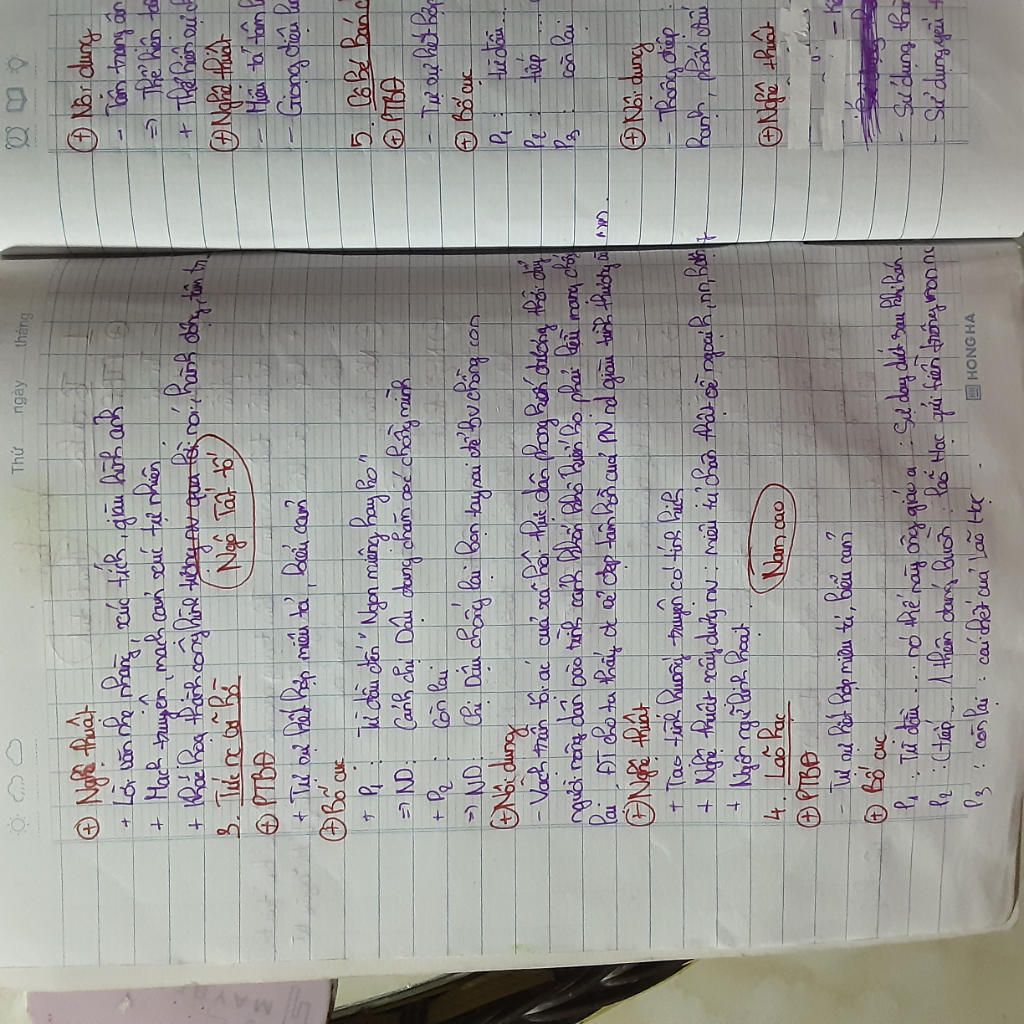 Thứ ngày tháng
⊕ Nghệ thuật
+ Lời văn nhẹ nhàng, xúc tích, giàu hình ảnh
+ Mạch truyện, mạch cảm xúc tự nhiên
+ Khắc họa thành công hình tượng nv qua lời nói, hành động, tâm tr
3. Tức nc vỡ bờ
Ngô Tất Tố
⊕ PTBĐ
+ Tự sự kết hợp miêu tả, biểu cảm
⊕ Bố cục
+ P1 : Từ đầu đến "Ngon miệng hay ko"
=> ND : Cảnh chị Dậu đang chăm sóc chồng mình
+ P2 : Còn lại
=> ND : Chị Dậu chống lại bọn tay sai để bv chồng con
⊕ Nội dung
- Vạch trần tội ác của xã hội thực dân phong kiến đương thời đẩy
người nông dân vào tình cảnh khốn khổ khiến họ phải liều mạng chống
lại. ĐT cho ta thấy đc vẻ đẹp tâm hồn của PN nd giàu tình thương
⊕ Nghệ thuật
+ Tạo tình huống truyện có tính kịch
+ Nghệ thuật xây dựng nv : miêu tả chân thật về ngoại h, nn, hành
+ Ngôn ngữ linh hoạt
4. Lão hạc
Nam cao
⊕ PTBĐ
- Tự sự kết hợp miêu tả, biểu cảm
⊕ Bố cục
P1 : Từ đầu .... nó thế này ông giáo ạ : Sự day dứt sau khi bán
P2 : (tiếp .... 1 thêm đáng buồn : Lão Hạc gửi tiền trông mon nc
P3 : còn lại : cái chết của Lão Hạc
HONG HA
⊕ Nội dung
- Tâm trạng
=> Thể hiện
+ Thể hiện
⊕ Nghệ thuật
- Miêu tả tâm
- Giọng điệu
5. Cô bé bán
⊕ PTBĐ
- Tự sự kết hợp
⊕ Bố cục
P1 : từ đầu ...
P2 : tiếp ...
P3 : còn lại
⊕ Nội dung
- Thông điệp
hạnh, phấn đấu
⊕ Nghệ thuật
- Sử dụng
- Sử dụng yếu